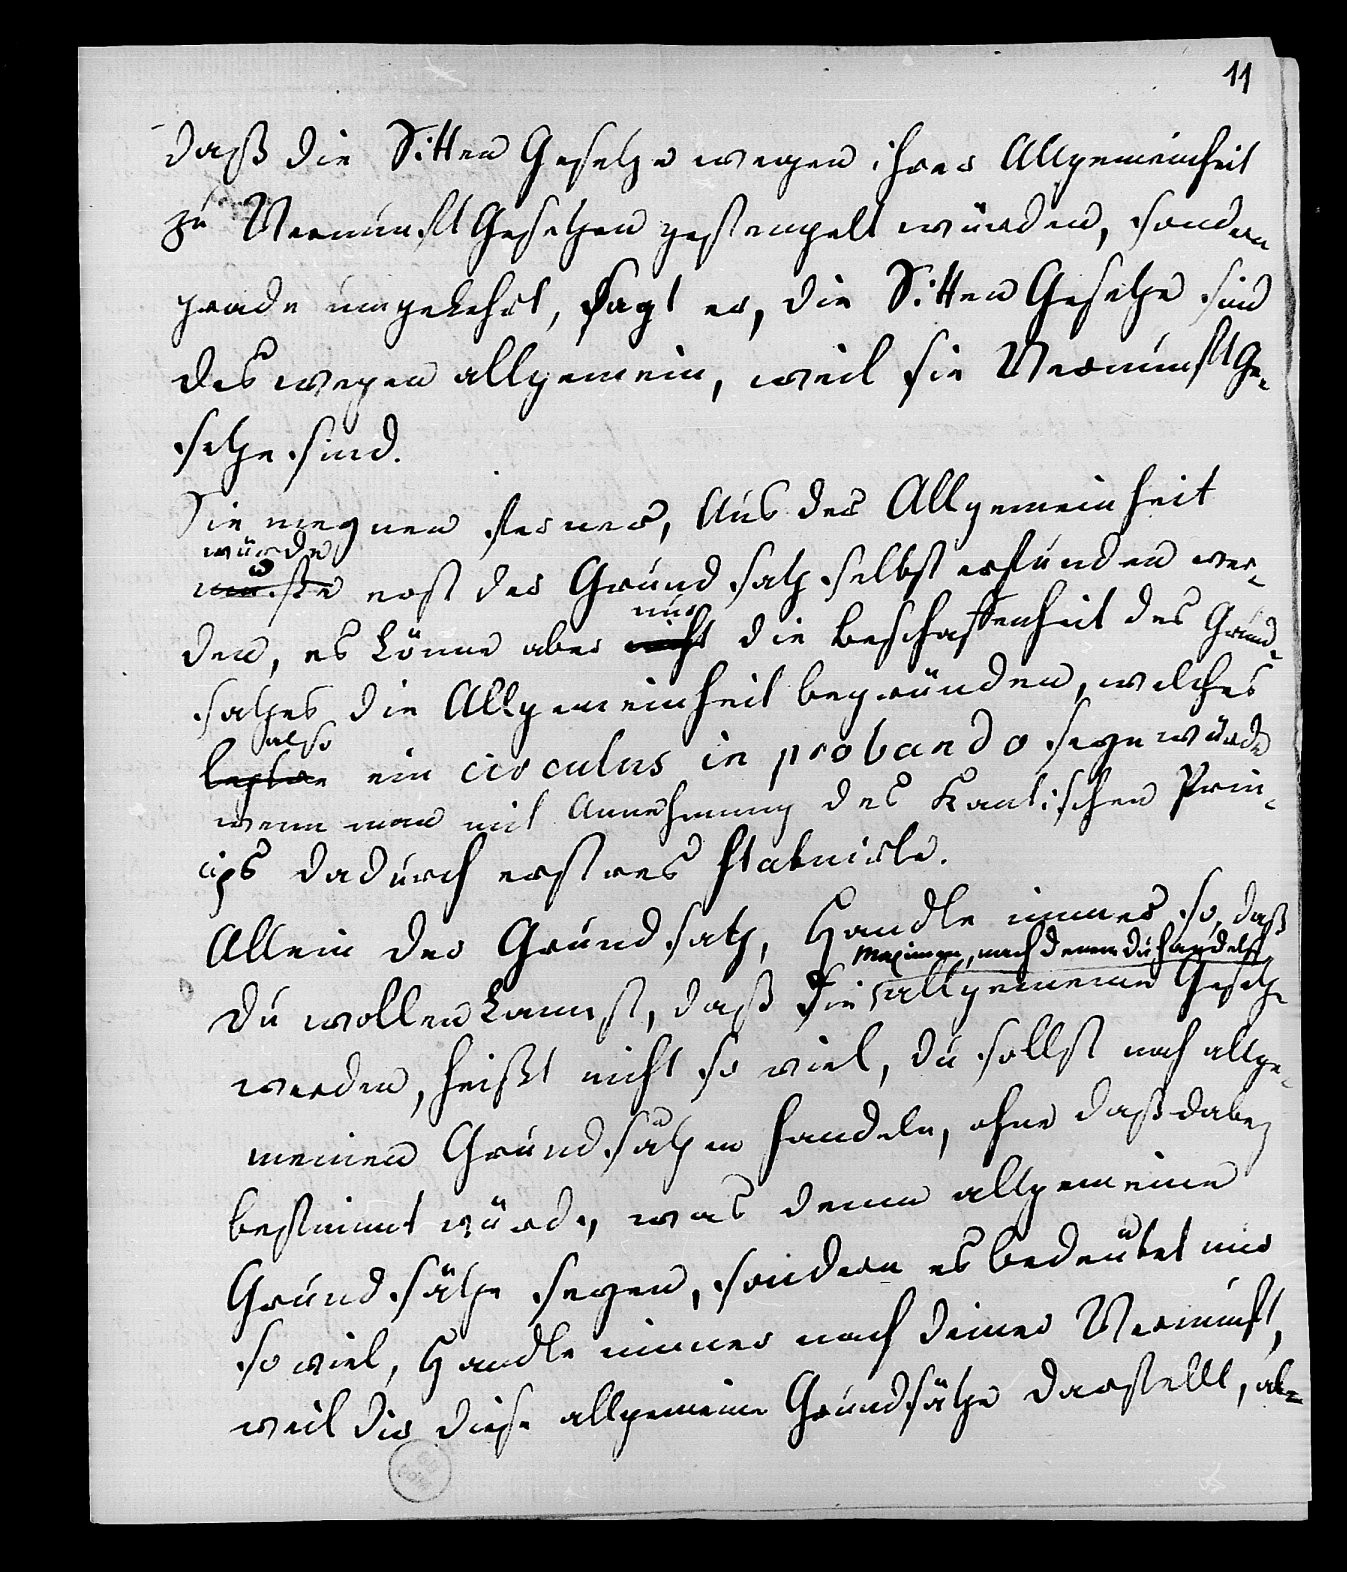 11
daß die Sitten Gesetze wegen ihrer Allgemeinheit
zu Vernunft Gesetzen gestempelt würden, sondern
grade umgekehrt, sagt er, die Sitten Gesetze sind
deswegen allgemein, weil sie Vernunft Ge-
setze sind.
Sie meynen ferner, Aus der Allgemeinheit
würde
müßte erst der Grundsatz selbst erfunden wer-
nur
den, es könne aber nicht die Beschaffenheit des Grund-
satzes die Allgemeinheit begründen, welches
also
ein circulus in probando seyn würde
wenn man mit Annehmung des Kantischen Prin-
cips dadurch erstres stabilirte.
Allein der Grundsatz, Handle immer so, daß
Maximen, nach denen du handelst
Du wollen kannst, daß die allgemeine Gesetze
werden, heißt nicht so viel, du sollst nach allge-
meinen Grundsätzen handeln, ohne daß dabey
bestimmt würde, was denn allgemeine
Grundsätze seyen, sondern es bedeutet nur
so viel, Handle immer nach deiner Vernunft,
weil dir diese allgemeine Grundsätze darstellt,